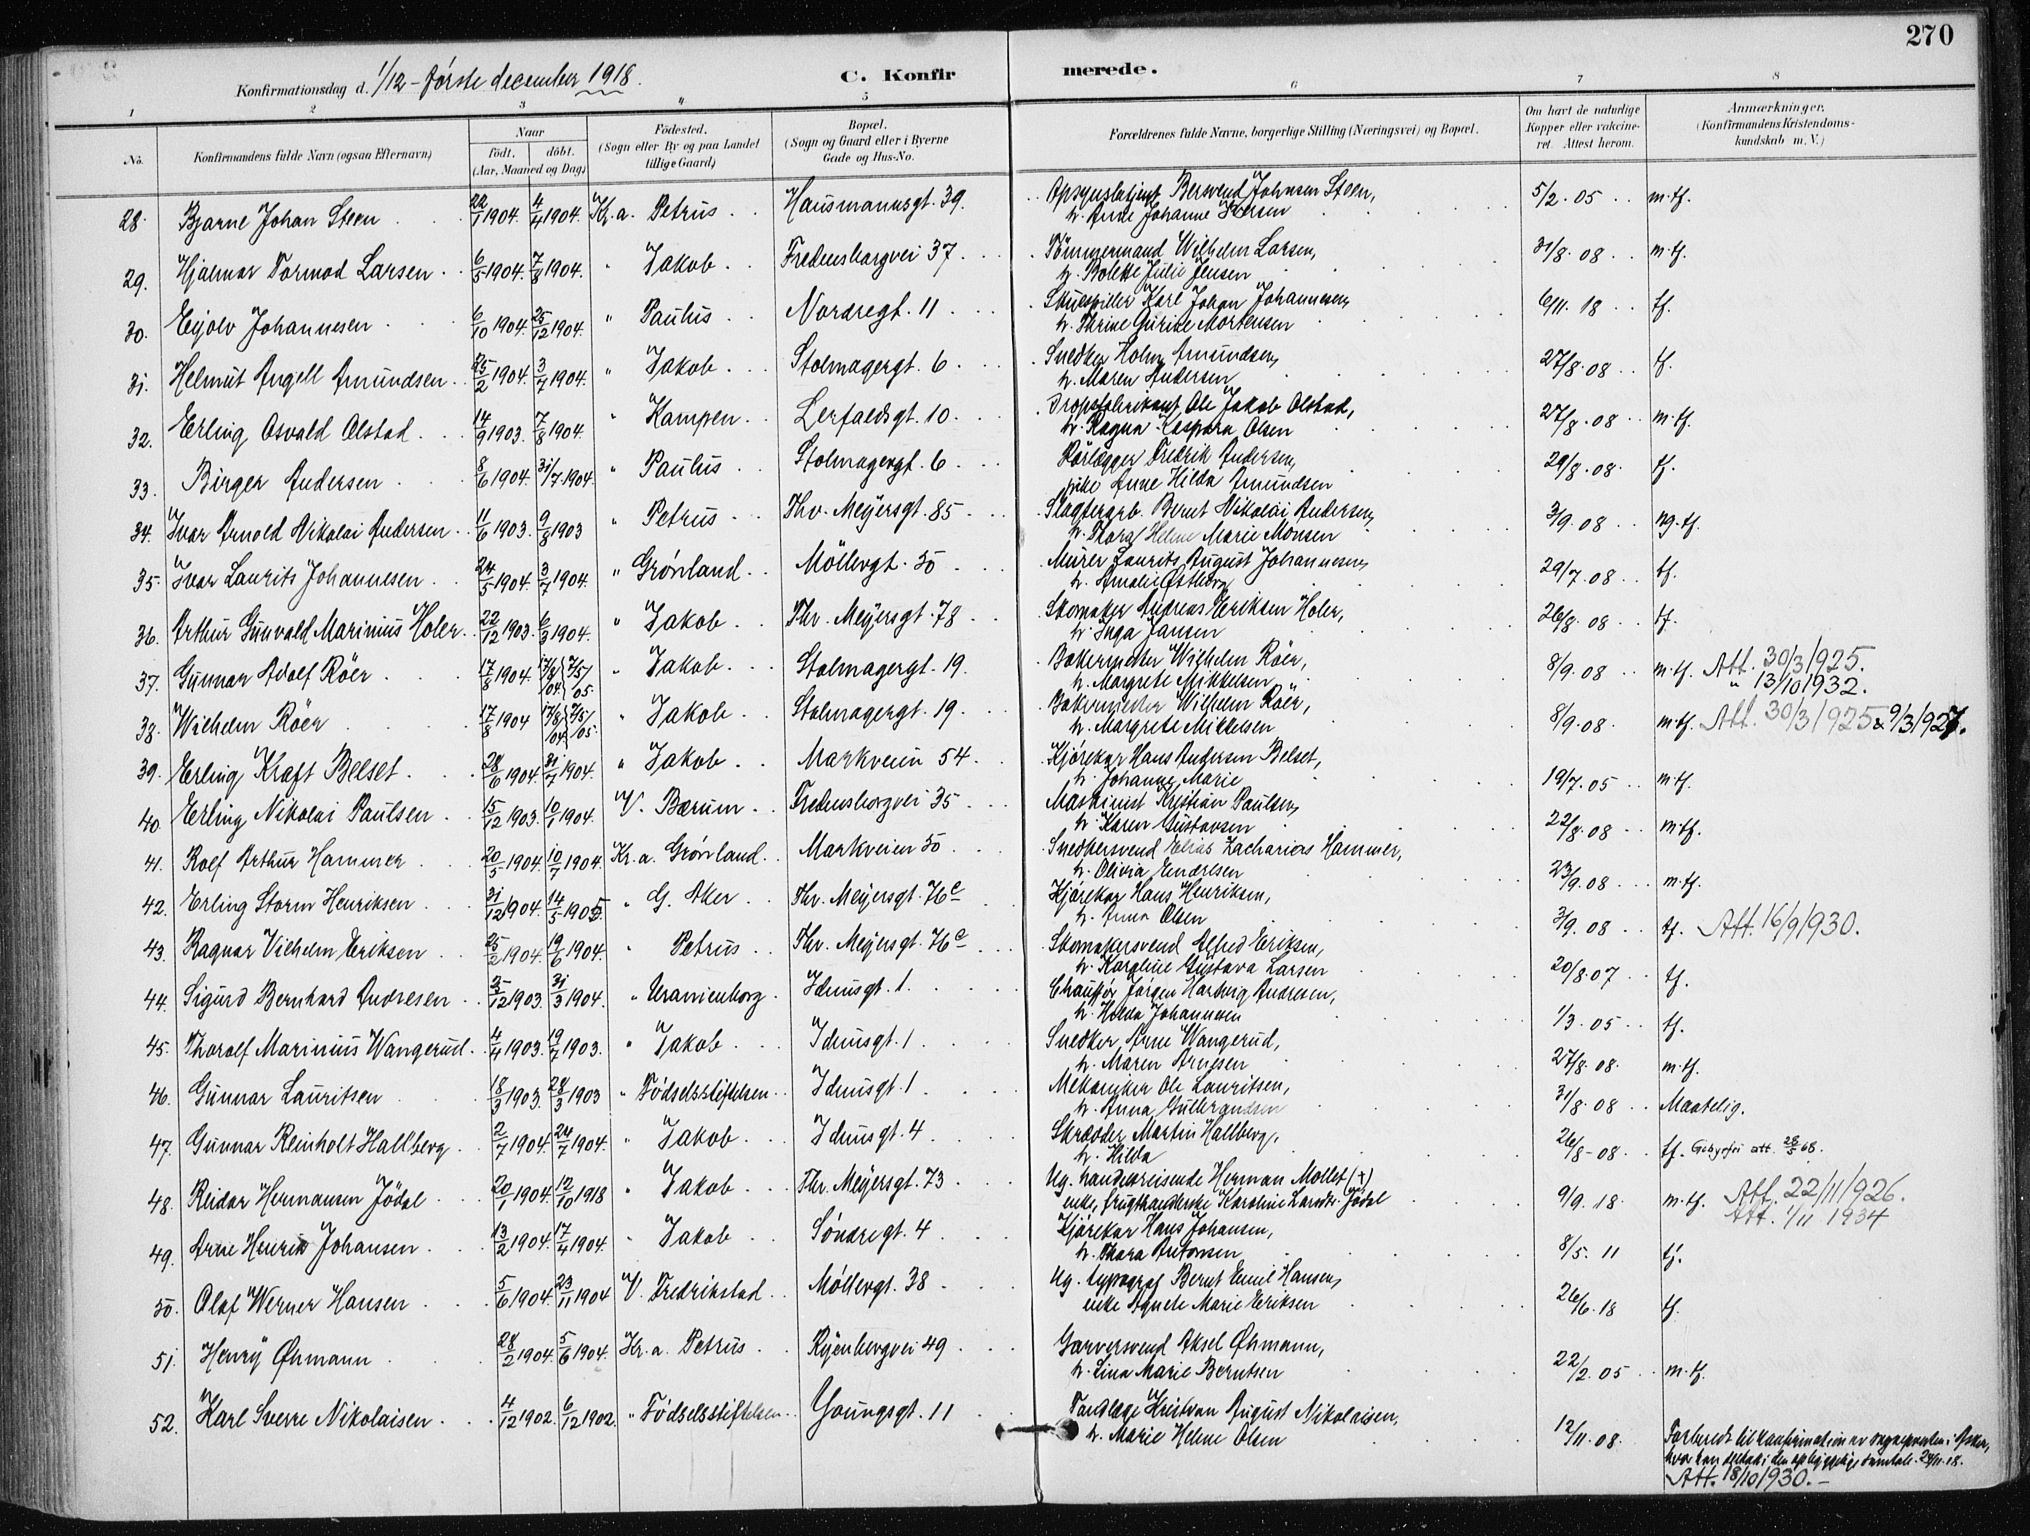 270
Konfirmationsdag d. 1/12 - første december 1918. C. Konfirmerede.
1 2 3 " 5 6 7 8
No. Konfirmandens fulde Navn (ogsaa Efternavn) Naar födt. döbt. (Aar, Maaned og Dag) Födested. (Sogn eller By og paa Landet tillige Gaard) Bopæl. (Sogn og Gaard eller i Byerne Gade og Hus-No. Forældrenes fulde Navne, borgerlige Stilling (Næringsvei) og Bopæl. Om havt de naturlige Kopper eller vakcineret. Attest herom. Anmærkninger. (Konfirmandens Kristendomskundskab m. V.)
28. Bjarne Johan Steen 22/1 1904. 4/4 1904. Kr.a. Petrus Hausmannsgt. 39. Opsynsbetjent Bersvend Johnsen Steen, 5/2. 05 m.tf.
h. Anne Johanne Iversen
29. Hjalmar Tormod Larsen 6/5 1904. 7/8 1904. " Jakob Fredensborgvei 37 Tömmermand Wilhelm Larsen, 31/8. 08 m.tf.
h. Bolette Julie Jensen
30. Eyolv Johannesen 6/10 1904. 25/12 1904. " Paulus Nordregt. 11 Skuespiller Karl Johan Johannesen, 6/11. 18 tf.
h. Thrine Gurine Mortensen
31. Helmut Angell Amundsen 25/2 1904. 3/7 1904. " Jakob Stolmagergt. 6 Snedker Holm Amundsen, 27/8. 08 tf.
h. Maren Andersen
32. Erling Osvald Olstad 14/9 1903. 7/8 1904. " Kampen Lerfaldsgt. 10 Dropsfabrikant Ole Jakob Olstad, 27/8. 08 m.tf.
h. Ragna Kaspara Olsen
33. Birger Andersen 8/6 1904. 31/7 1904. " Paulus Stolmagergt. 6 Rörlægger Fredrik Andersen, 29/8. 08. tf.
pike Anne Hilda Amundsen
34. Ivar Arnold Nikolai Andersen 11/6 1903. 9/8 1903 " Petrus Thv. Meyersgt. 85 Slagterarb. Bernt Nikolai Andersen, 3/9. 08 ng.tf.
h. Thora Helene Marie Monsen
35. Ivar Laurits Johannesen 24/5 1904. 3/7 1904. " Grønland Möllergt. 50 Murer Laurits August Johannesen, 29/7. 08 tf.
h. Amalie Østberg
36. Arthur Gunvald Marinius Holer 22/12 1903. 6/3 1904. " Jakob Thv. Meyersgt. 78 Skomaker Andreas Eriksen Holer, 26/8. 08 tf.
h. Inga Jansen
37. Gunnar Adolf Röer 17/8 1904. 17/8/04 2/5/05. " Jakob Stolmagergt. 19 Bakermester Wilhelm Röer, 8/9. 08 m.tf. Att. 30/3 1925.
" 13/10 1932.
h. Margrete Mikkelsen
38. Wilhelm Röer 17/8 1904 17/8/04 2/5/05. " Jakob Stolmagergt. 19 Bakermester Wilhelm Röer, 8/9. 08. m.tf. Att. 30/3 1925 & 9/3 1927.
h. Margrete Mikkelsen
39. Erling Kraft Belset 28/6 1904. 31/7 1904. " Jakob Markveien 54 Kjørekar Hans Andersen Belset, 19/7. 05 m.tf.
h. Johanne Marie
40. Erling Nikolai Paulsen 15/12 1903. 10/1 1904. V. Bærum Fredensborgvei 35 Maskinist Kristian Paulsen, 22/8. 08 m.tf.
h. Karen Gustavsen
41. Rolf Arthur Hammer 20/5 1904. 10/7 1904. Kr.a. Grønland Markveien 50 Snedkersvend Elias Zacharias Hammer, 23/9. 08 m.tf.
h. Olivia Endresen
42. Erling Storm Henriksen 31/12 1904. 14/5 1905. " G. Aker Thv. Meyersgt. 76c Kjørekar Hans Henriksen, 3/9. 08 tf. Att. 16/9 1930.
h. Anna Olsen
43. Ragnar Vilhelm Eriksen 25/2 1904. 19/6 1904. " Petrus Thv. Meyersgt. 76c Skomakersvend Alfred Eriksen, 20/8. 07 tf.
h. Karoline Gustava Larsen
44. Sigurd Bernhard Andresen 25/12 1903. 31/3 1904. " Uranienborg Idunsgt. 1. Chauffør Jørgen Hartvig Andresen, 1/3. 05 tf.
h. Hilda Johannesen
45. Thoralf Marinius Wangerud 4/4 1903. 19/7 1903. " Jakob Idunsgt. 1 Snedker Arne Wangerud, 27/8. 08. m.tf.
h. Maren Arnesen
46. Gunnar Lauritsen 18/3 1903. 28/3 1903 " Fødselsstiftelsen Idunsgt. 1 Mekaniker Ole Lauritsen, 31/8. 08 Maatelig.
h. Anna Gulbrandsen
47. Gunnar Reinholt Hallberg 2/7 1904. 24/7 1904. " Jakob Idunsgt. 4 Skrædder Martin Hallberg, 26/8 - 08 tf. Gebyrfri att. 28/5 68.
h. Hilda
48. Reidar Hermansen Jödal 20/1 1904. 12/10 1918 " Jakob Thv. Meyersgt. 73 Ug. handelsreisende Herman Mollet (+) 9/9. 18 m.tf. Att. 22/11 1926.
Att. 1/11 1934
enke, frugthandlerske Karoline Larsdr. Jödal
49. Arne Henrik Johansen 13/2 1904. 17/4 1904. " Jakob Søndregt. 4 Kjørekar Hans Johansen, 8/5. 11 tf.
h. Thora Antonsen
50. Olaf Werner Hansen 5/6 1904. 23/11 1904 V. Fredrikstad Møllergt. 38 Ug. typograf Bernt Emil Hansen, 26/6. 18 tf.
enke Agnete Marie Eriksen
51. Henry Øhmann 28/2 1904. 5/6 1904. Kr.a. Petrus Ryenbergvei 49 Garversvend Aksel Øhmann, 22/2. 05 m.tf.
h. Lina Marie Berntsen
52. Karl Sverre Nikolaisen 4/12 1902. 6/12 1902. " Fødselsstiftelsen Youngsgt. 11 Tandlæge Kristian August Nikolaisen, 12/11. 08. Forberedt til konfirmation av sogneprosten i Asker,
h. Marie Helene Olsen hvor han deltok i den opbyggelige samtale. 24/11. 18.
Att. 18/10 1930.-